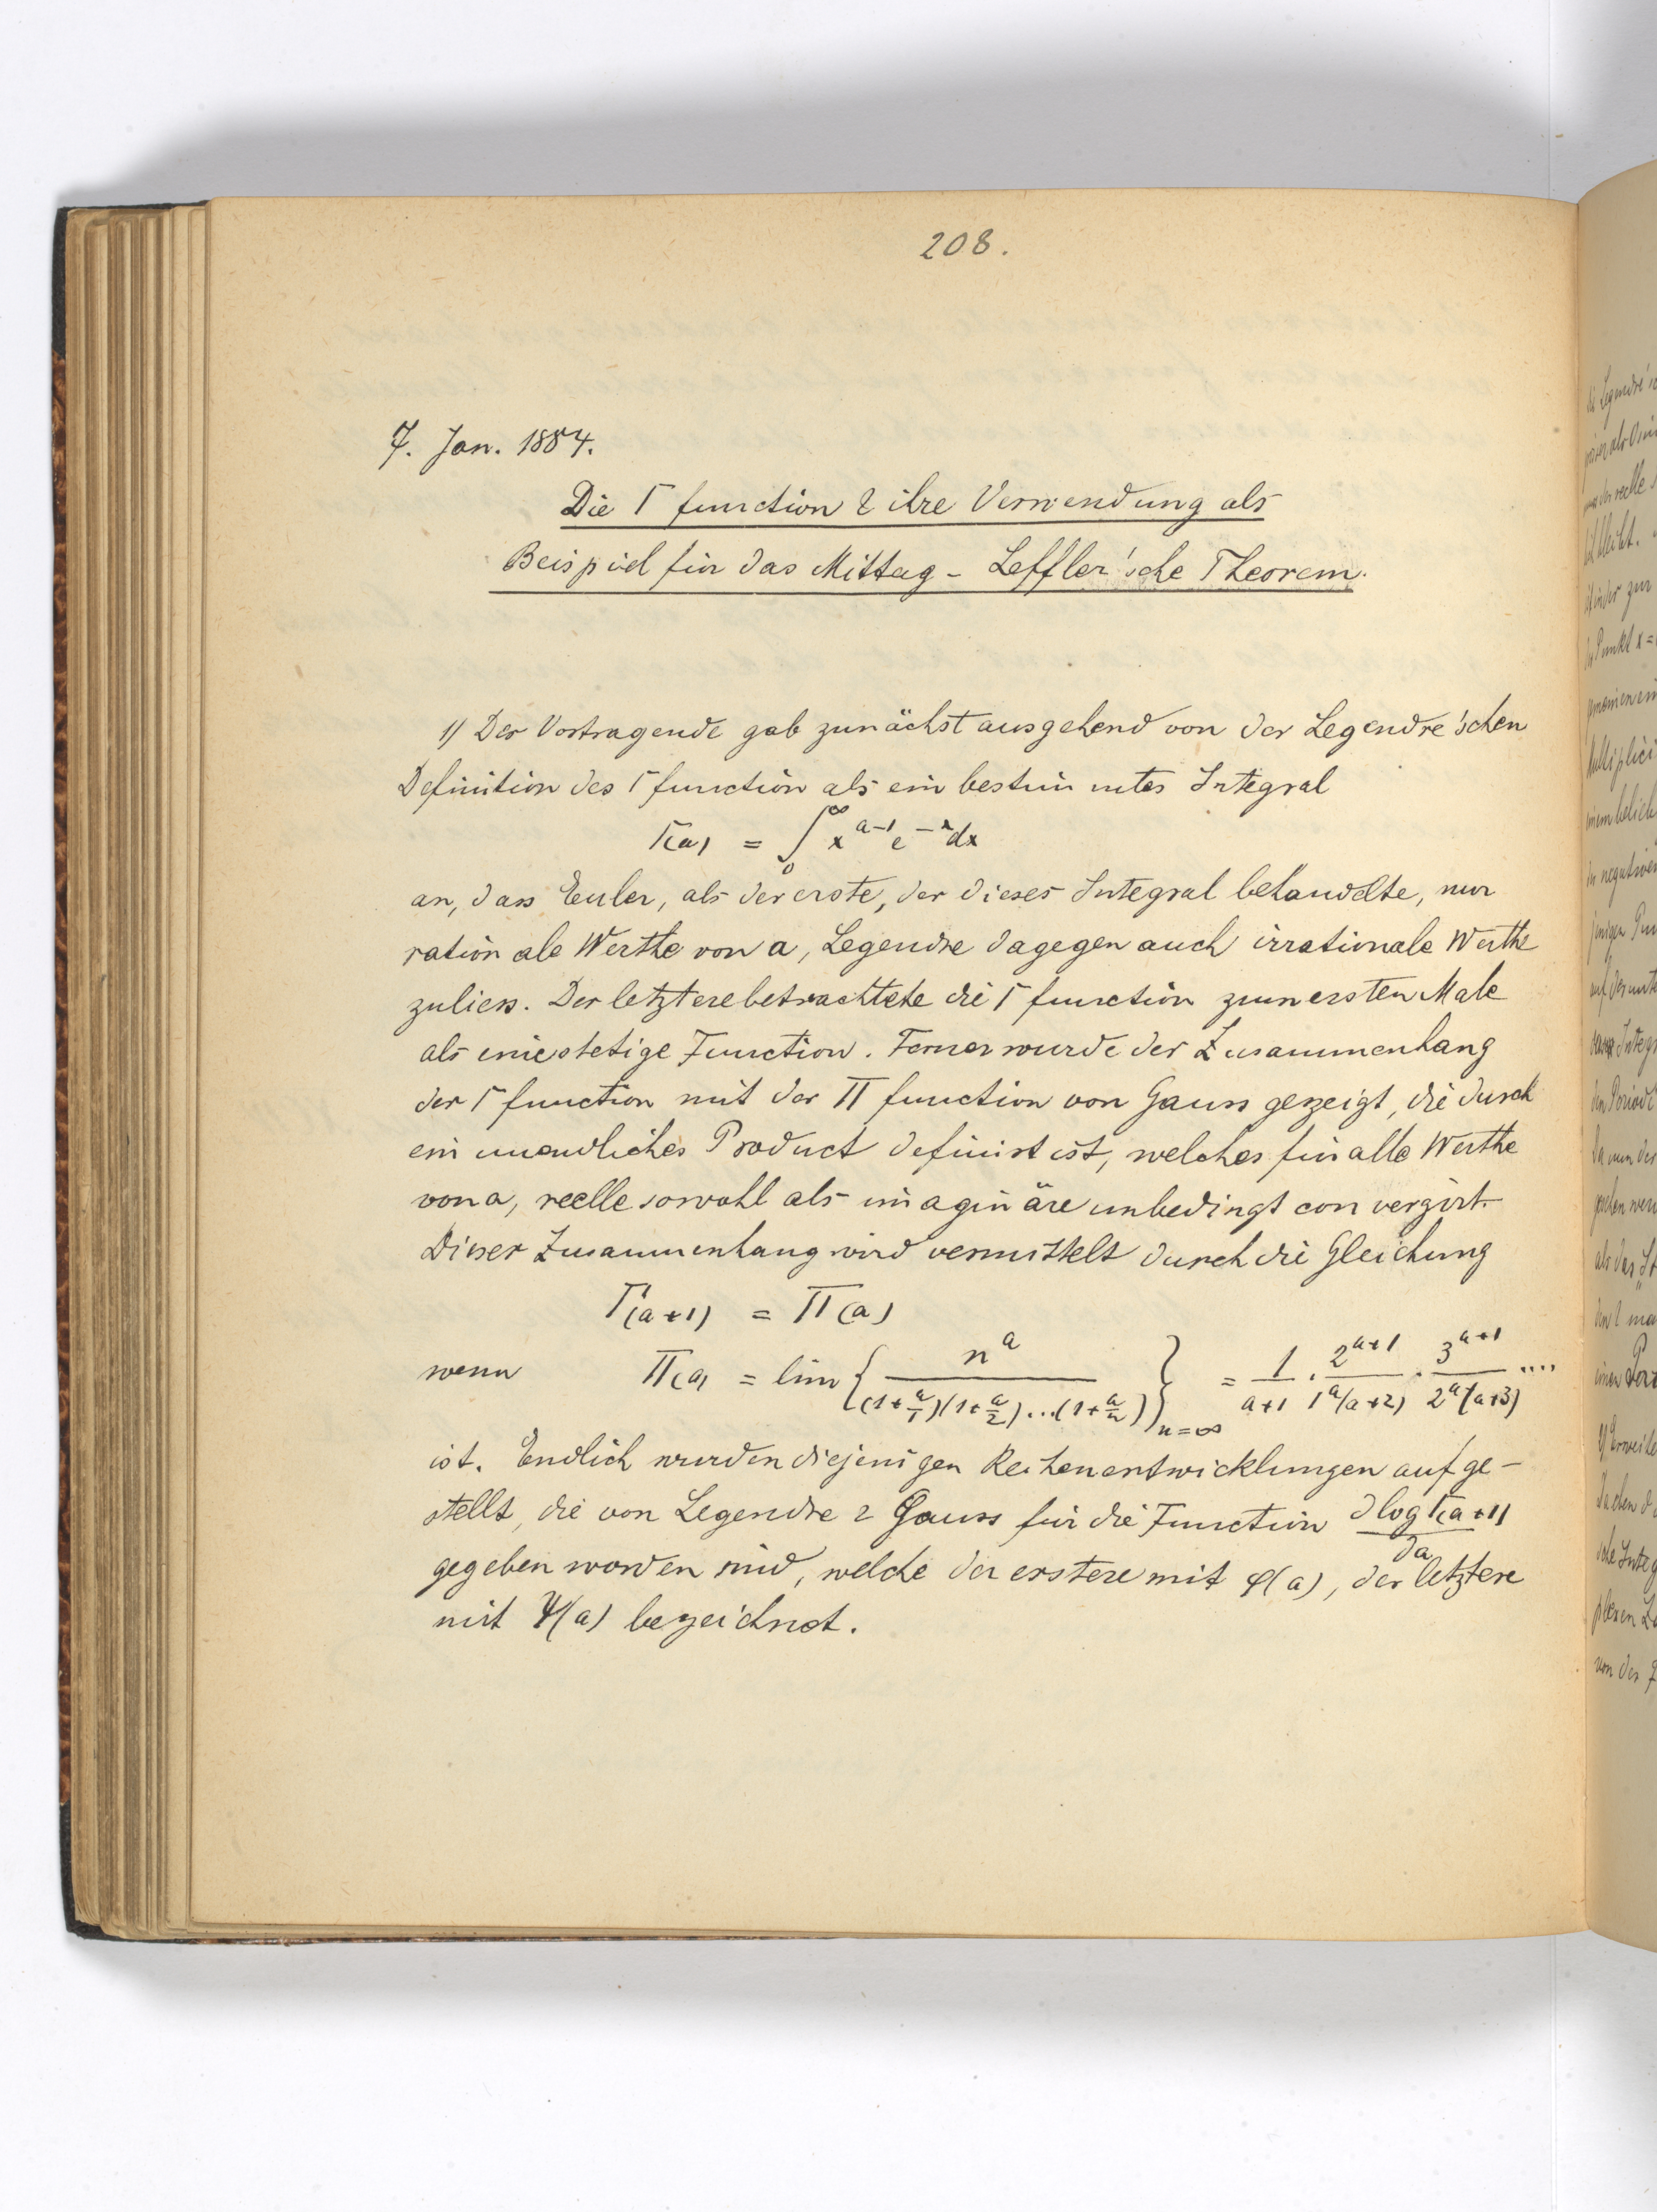 208.
7. Jan. 1884.
Die Γ function & ihre Verwendung als
Beispiel für das Mittag - Leffler'sche Theorem.
1) Der Vortragende gab zunächst ausgehend von der Legendre'schen
Definition der Γ function als ein bestimmtes Integral
Γ(a) = ∫₀^∞ x^{a-1} e^{-x} dx
an, dass Euler, als der erste, der dieses Integral behandelte, nur
rationale Werthe von a, Legendre dagegen auch irrationale Werthe
zuliess. Der letztere betrachtete die Γ function zum ersten Male
als eine stetige Function. Ferner wurde der Zusammenhang
der Γ function mit der Π function von Gauss gezeigt, die durch
ein unendliches Product definirt ist, welches für alle Werthe
von a, reelle sowohl als imaginäre unbedingt convergirt.
Dieser Zusammenhang wird vermittelt durch die Gleichung
Γ(a+1) = Π(a)
wenn Π(a) = lim { n^a / (1+a/1)(1+a/2)...(1+a/n) }_{n=∞} = 1/(a+1) · 2^{a+1}/1^a(a+2) · 3^{a+1}/2^a(a+3) ....
ist. Endlich wurden diejenigen Reihenentwicklungen aufge-
stellt, die von Legendre & Gauss für die Function ∂log Γ(a+1)/∂a
gegeben worden sind, welche der erstere mit φ(a), der letztere
mit Ψ(a) bezeichnet.